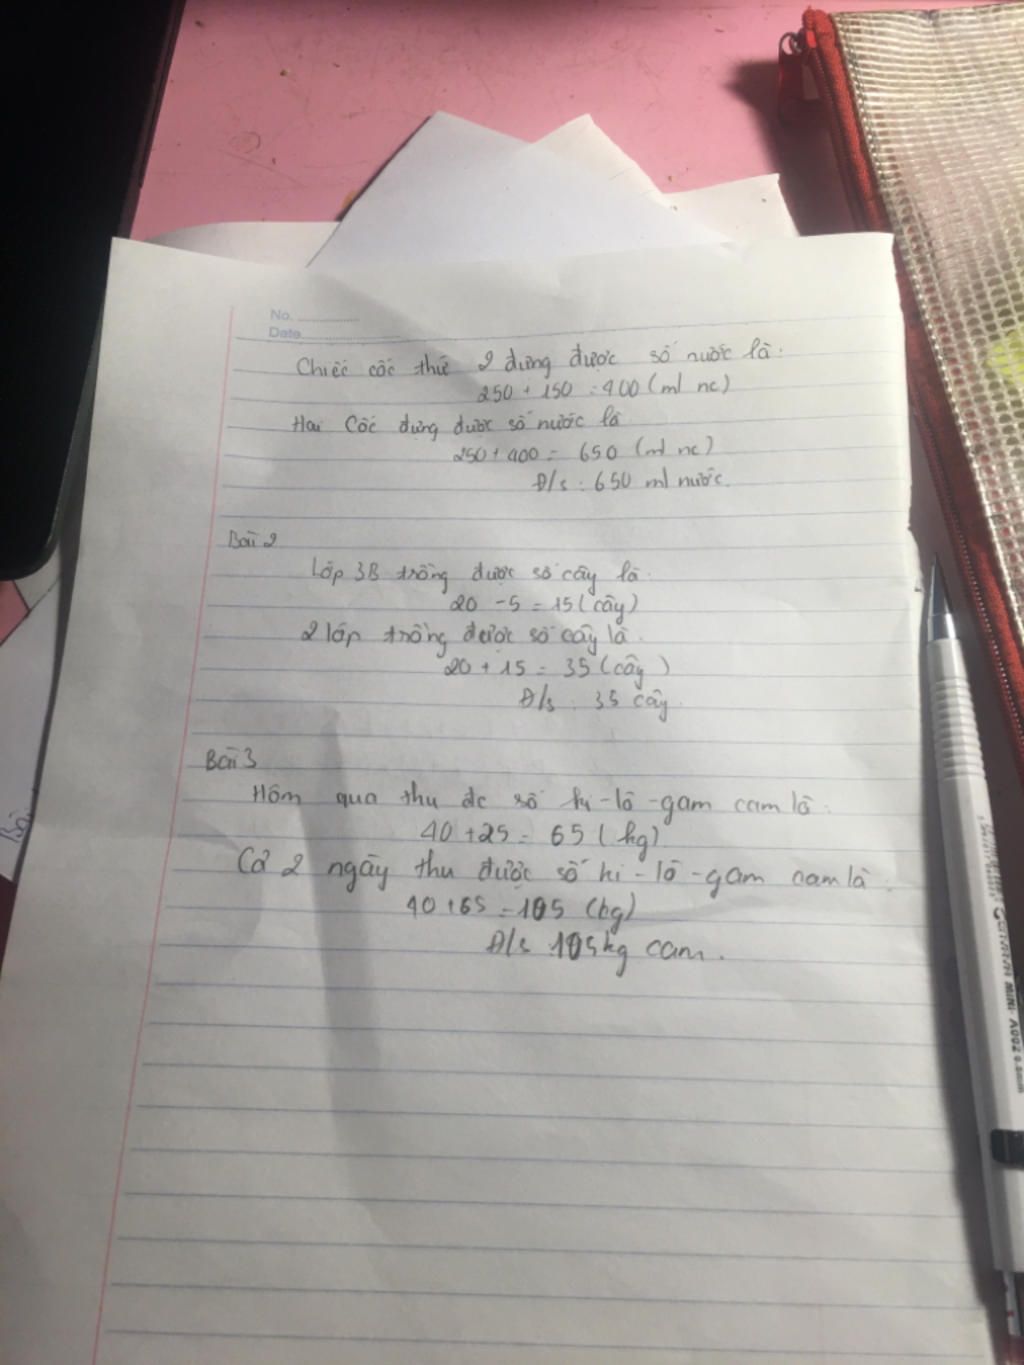 No.
Date
Chiếc cốc thứ 2 đựng được số nước là:
250 + 150 = 400 (ml nc)
Hai Cốc đựng được số nước là
250 + 400 = 650 (ml nc)
Đ/s : 650 ml nước.
Bài 2
Lớp 3B trồng được số cây là.
20 - 5 = 15 (cây)
2 lớp trồng được số cây là.
20 + 15 = 35 (cây)
Đ/s : 35 cây.
Bài 3
Hôm qua thu đc số ki-lô-gam cam là:
40 + 25 = 65 (kg)
Cả 2 ngày thu được số ki-lô-gam cam là:
40 + 65 = 105 (kg)
Đ/s 105kg cam.
Bài
MINI A002 0.5mm